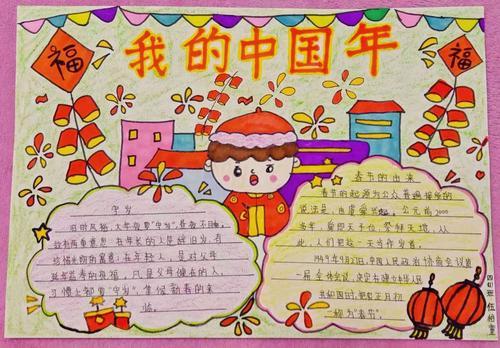 我的中国年
福
福
守岁
旧时风俗，大年夜要“守岁”，昼夜不眠，
故有两重意思：在年长的人是辞旧岁，有
珍惜光阴的寓意；在年轻人，是对父母
延年益寿的祝福，凡是父母健在的人，
习惯上都要“守岁”，等候新春的来
临。
春节的由来
春节的起源为公众普遍接受的
说法是，由虞舜兴起。公元前2000
多年，舜即天子位，祭拜天地，从
此，人们把这一天当作岁首。
1949年9月27日，中国人民政治协商会议第
一届全体会议，决定在建立中华人民
共和国时，把农历正月初
一称为“春节”。